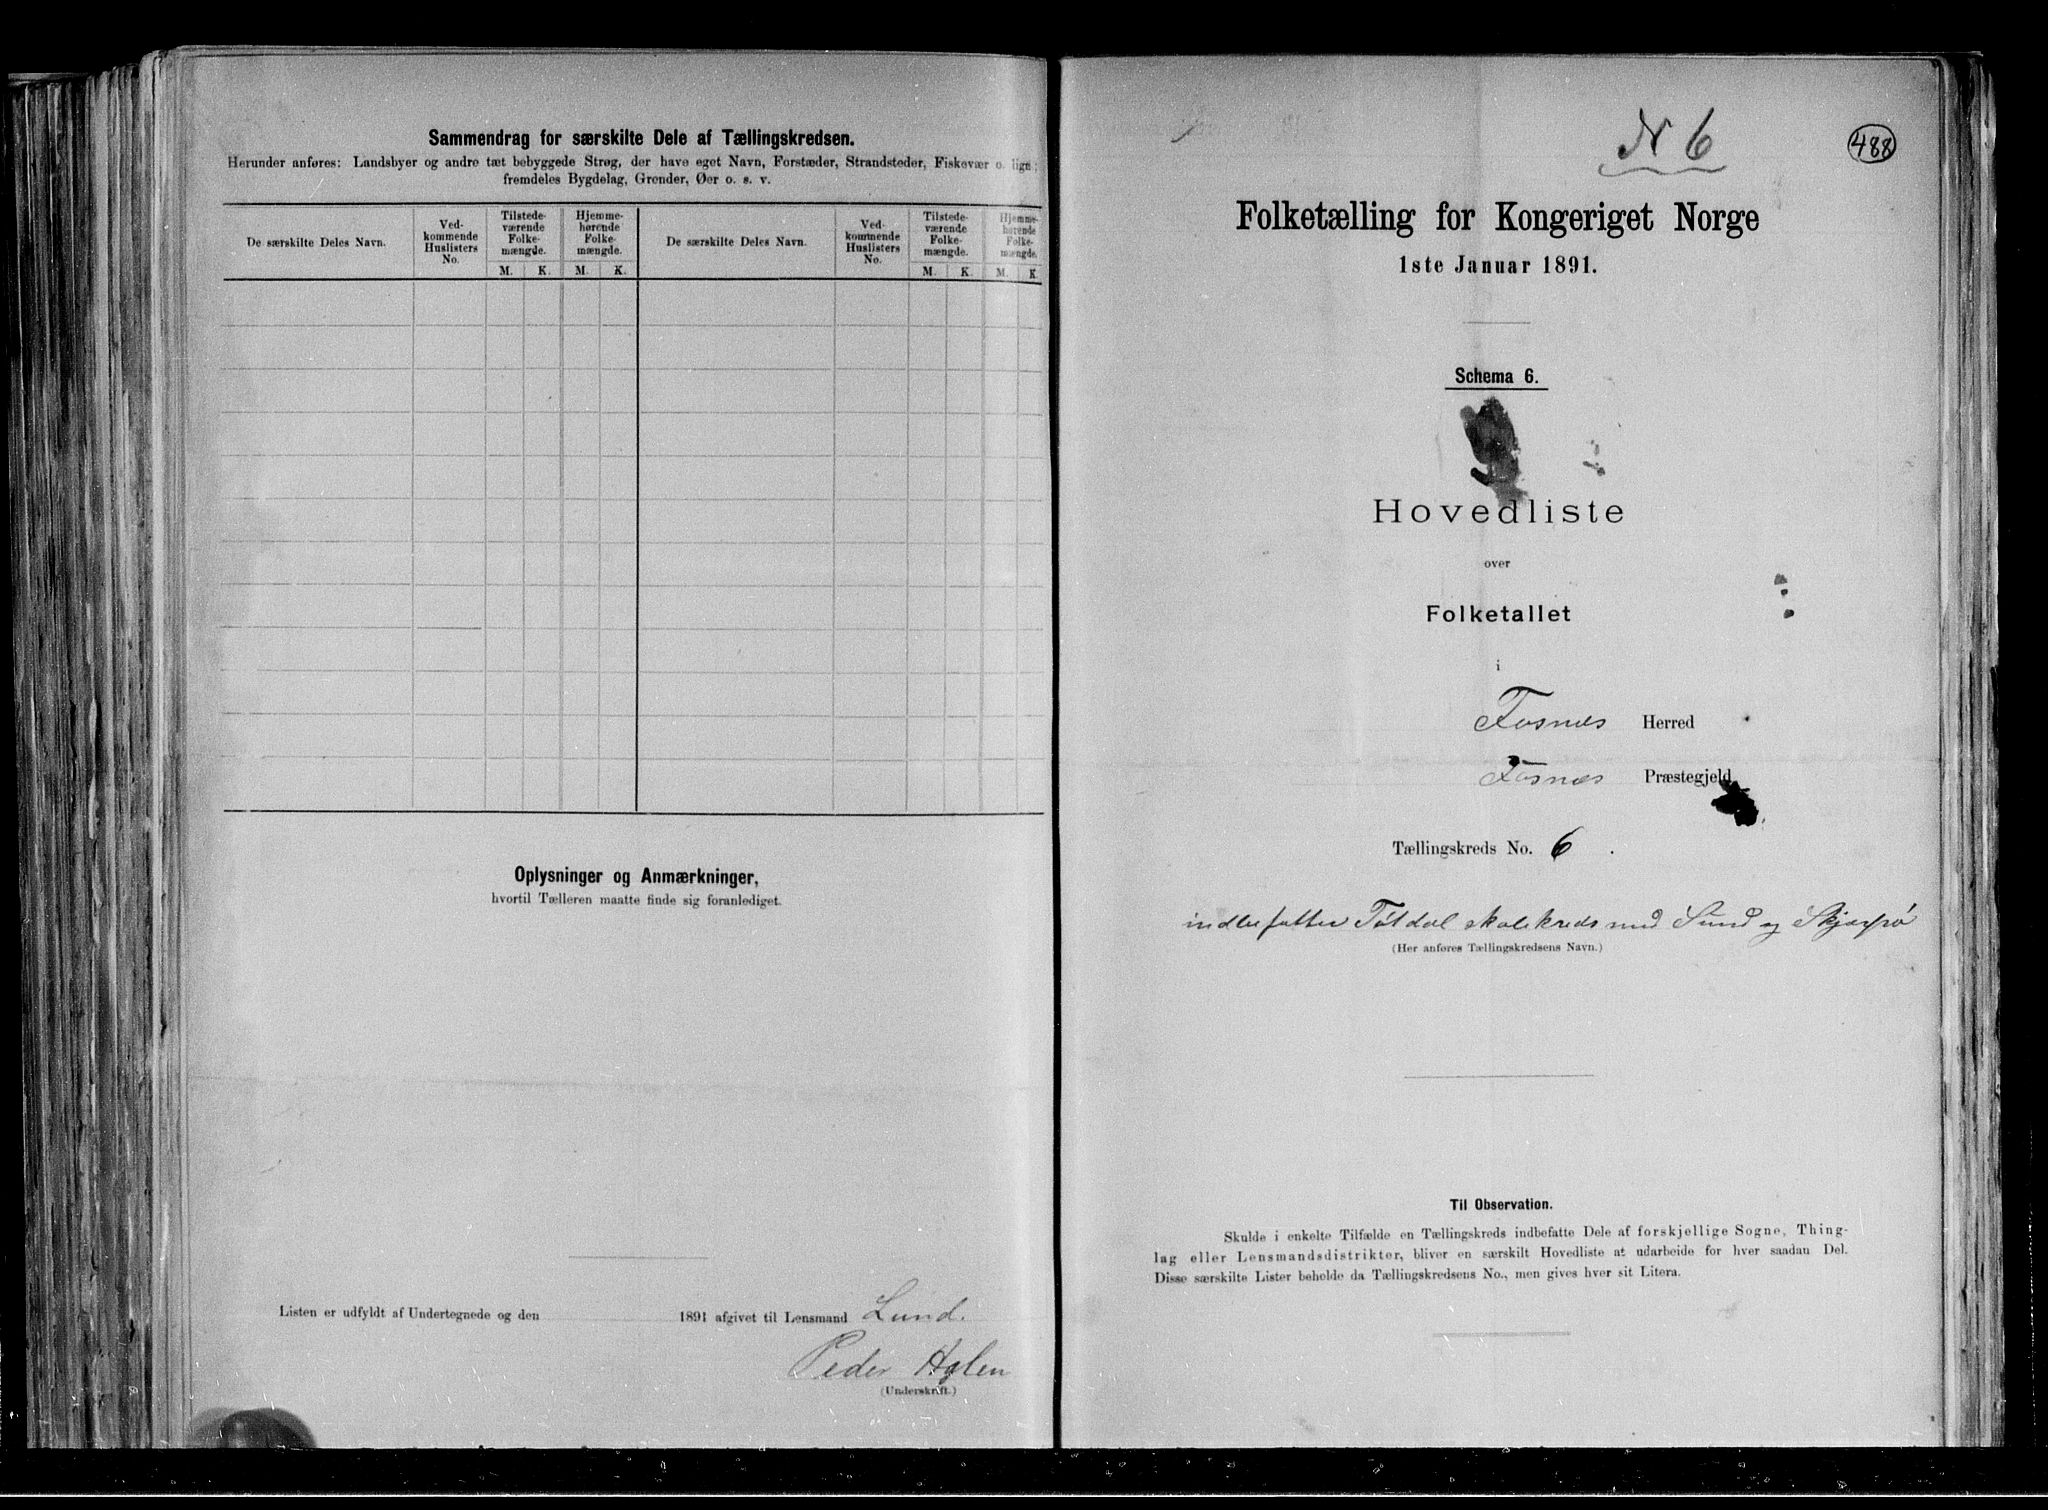 Sammendrag for særskilte Dele af Tællingskredsen.
Herunder anføres: Landsbyer og andre tæt bebyggede Strøg, der have eget Navn, Forstæder, Strandsteder, Fiskevær o. lign;
fremdeles Bygdelag, Grender, Øer o. s. v.
De særskilte Deles Navn.
Ved-
kommende
Huslisters
No.
Tilstede-
værende
Folke-
mængde.
Hjemme-
hørende
Folke-
mængde.
De særskilte Deles Navn.
Ved-
kommende
Huslisters
No.
Tilstede-
værende
Folke-
mængde.
Hjemme-
hørende
Folke-
mængde.
M. K. M. K. M. K. M. K
Oplysninger og Anmærkninger,
hvortil Tælleren maatte finde sig foranlediget.
Listen er udfyldt af Undertegnede og den 1891 afgivet til Lensmand Lund.
Peder
(Underskrift.)
N 6
488
Folketælling for Kongeriget Norge
1ste Januar 1891.
Schema 6.
Hovedliste
over
Folketallet
i
Fosnes Herred
Fosnes Præstegjeld
Tællingskreds No. 6.
indbefatter skolekreds med Sund og
(Her anføres Tællingskredsens Navn.)
Til Observation.
Skulde i enkelte Tilfælde en Tællingskreds indbefatte Dele af forskjellige Sogne, Thing-
lag eller Lensmandsdistrikter, bliver en særskilt Hovedliste at udarbeide for hver saadan Del.
Disse særskilte Lister beholde da Tællingskredsens No., men gives hver sit Litera.